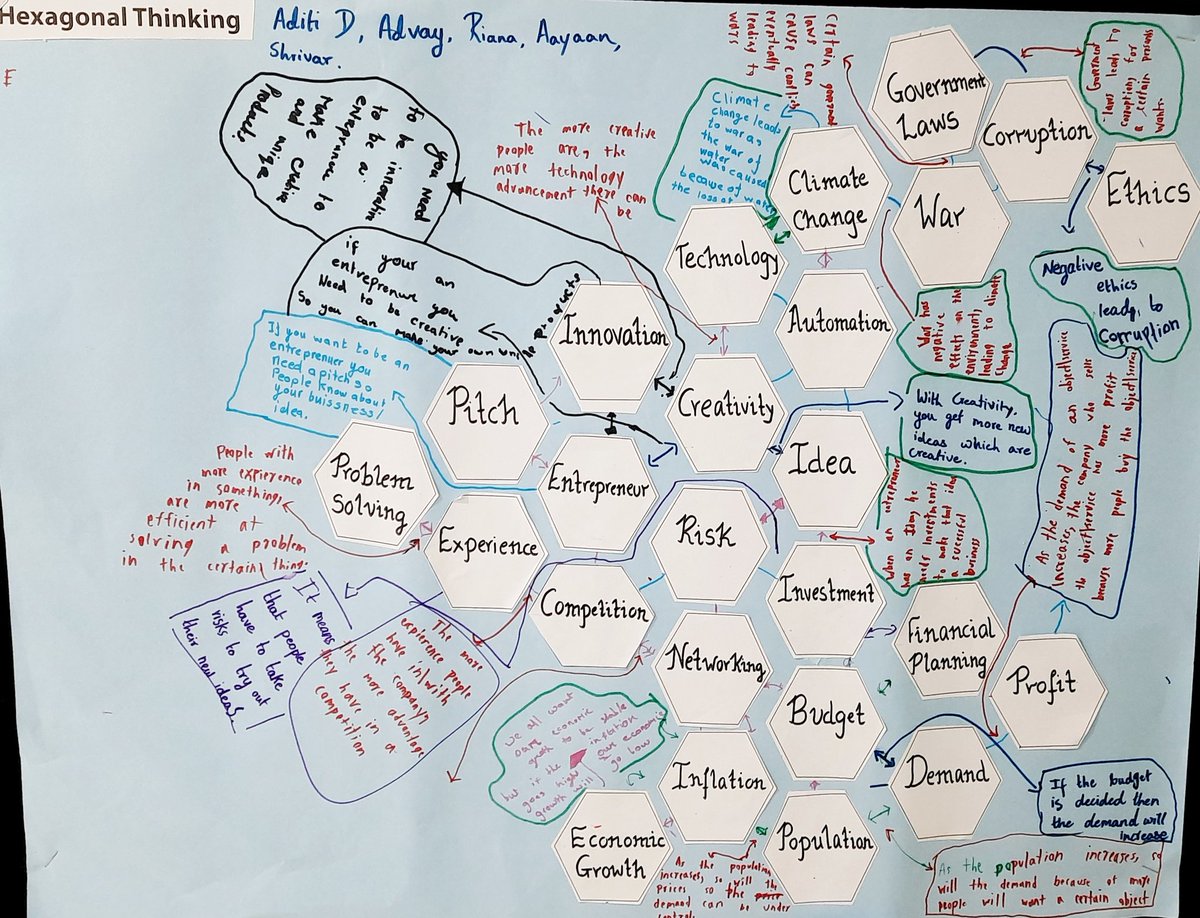 Hexagonal Thinking
Aditi D, Advay, Riana, Aayaan,
Shrivar.
E
you need
to be innovative
to be a
entreprenuer to
make creative
and unique
Products!
if your an
entreprenure you
Need to be creative
So you can make your own
products
The more creative
people are, the
more technology
advancement there can
be
Climate
change leads
to war as
the war of
water
was caused
because of water
the loss of
Certain government
laws can
cause conflict
eventually
leading to
wars
Government
Laws
Corruption
Government
laws leads to
corruption, for
a certain persons
wants.
Ethics
Climate
Change
War
Technology
Automation
Negative
ethics
leads to
Corruption
War has
negative
effects on the
environment,
leading to climate
change
Innovation
Creativity
If you want to be an
entreprenuer you
need a pitch so
People know about
your buissness/
idea.
Pitch
With Creativity,
you get more new
ideas which are
creative.
As the demand of an object/service
increases, the company who sells
the object/service has more profit
because more people buy the object/service
Problem
Solving
Entrepreneur
Idea
People with
more expirence
in something,
are more
efficient at
solving a problem
in the certain thing.
Experience
Risk
When an entreprenuer
has an Idea, he
needs investments
to make that idea
a sucessful
business
Competition
Investment
It means
that people
have to take
risks to try out
their new ideas
The more
expierence people
have in/with
the company,
the more advantage
they have in a
competition
Networking
Financial
Planning
Profit
Budget
We all want
our economic
growth to be stable
but if the inflation
goes high our economic
growth will go low
Inflation
Demand
If the budget
is decided then
the demand will
increase
Economic
Growth
Population
As the population
increases, so will the
prices, so the
demand can be under
control.
As the population increases, so
will the demand because of more
people will want a certain object